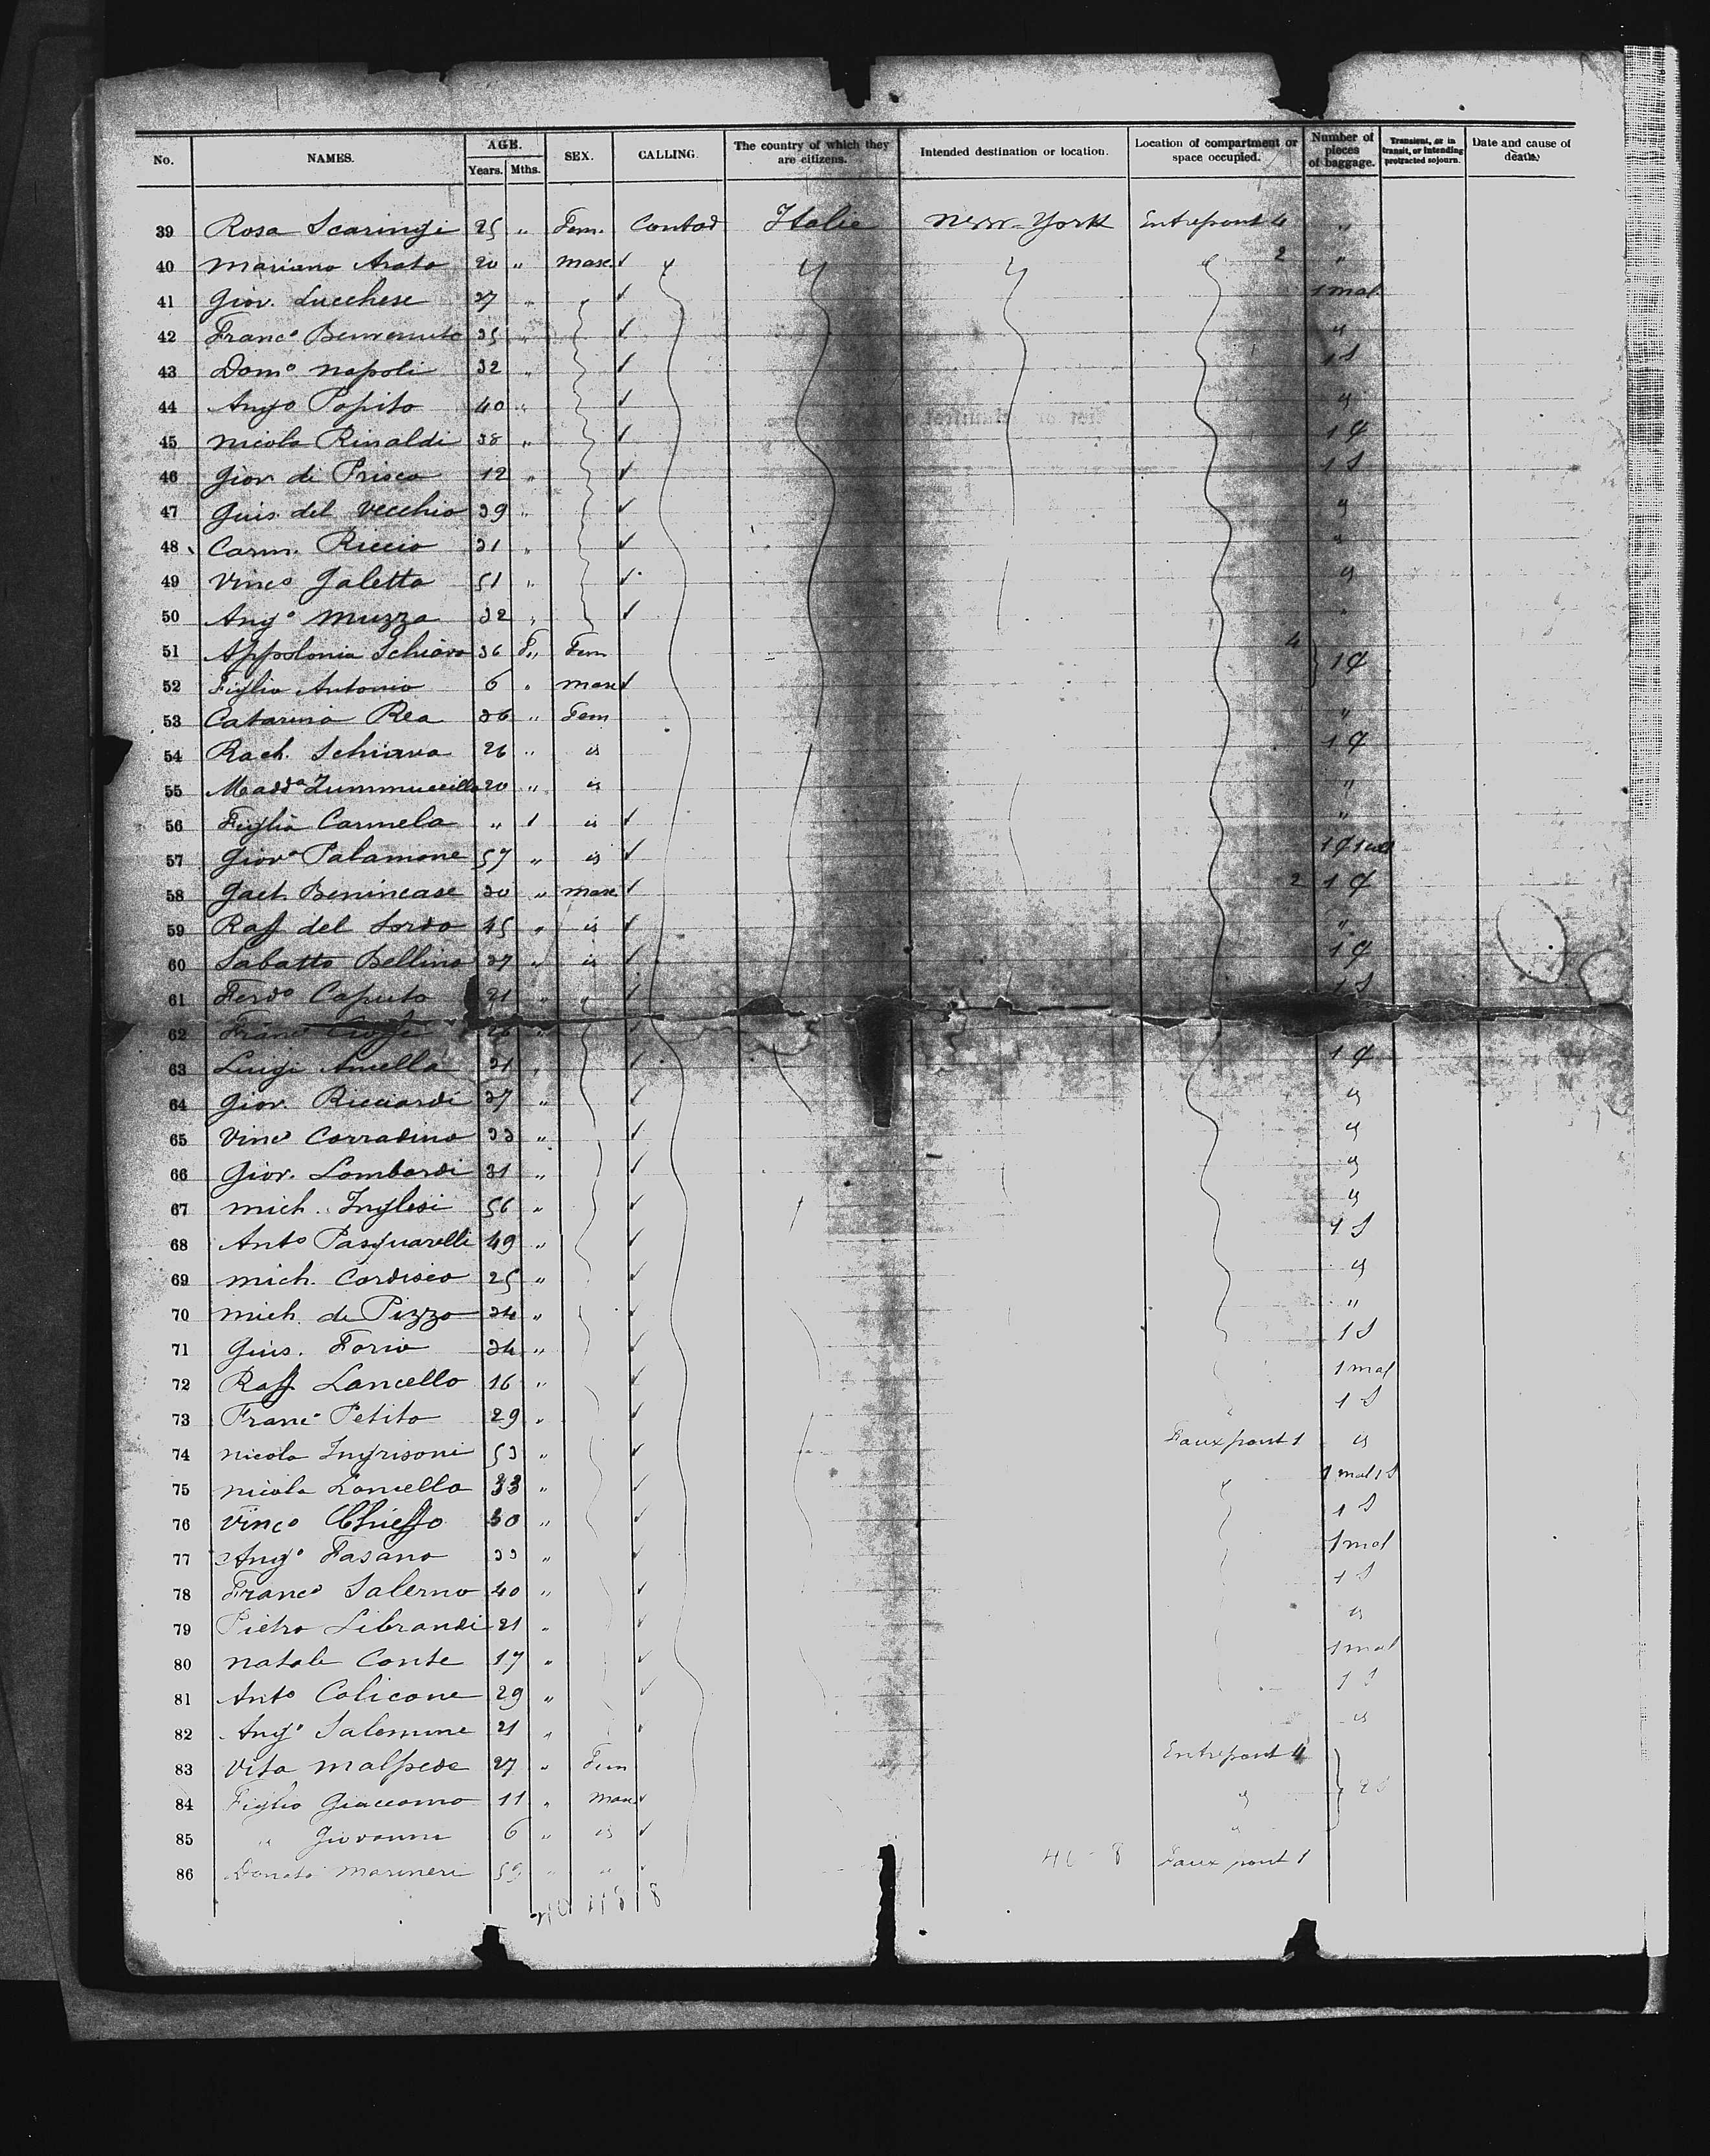 No. NAMES. AGE. Years. Mths. SEX. CALLING. The country of which they are citizens. Intended destination or location. Location of compartment or space occupied. Number of pieces of baggage. Transient, or in transit, or intending protracted sojourn. Date and cause of death.
39 Rosa Scaringi 25 " Fem. Contad Italie New-York Entrepont 4 "
40 Mariano Arato 20 " Masc 2 "
41 Giov. Lucchese 37 " 1 mal
42 Franco Benvenuto 35 "
43 Domo Napoli 32 " 1 S
44 Ango Popito 40 "
45 Nicola Rinaldi 38 "
46 Giov de Prisco 12 " 1 S
47 Guis. del Vecchio 39 "
48 Carm. Riccio 31 "
49 Vinco Galetta 51 "
50 Ango Muzzo 32 "
51 Appolonia Schiavo 36 Fem 4
52 Figlio Antonio 6 " Masc
53 Catarina Rea 36 " Fem "
54 Rach. Schiava 26 "
55 Madda 20 " "
56 Figlia Carmela " 1 "
57 Giova Palamone 57 "
58 Gaet. Benincase 30 " Masc 2
59 Raff del Sordo 45 " "
60 Sabatto Bellino 37 "
61 Ferdo Caputo 21 " 1 S
62 Franco
63 Luigi Aniella 31 "
64 Giov. Ricciardi 37 "
65 Vinco Corradino 33 "
66 Giov. Lombardi 31 "
67 Mich. Inglesi 56 "
68 Anto Pasquarelli 49 " 1 S
69 Mich. Cordisco 25 "
70 Mich. de Pizzo 34 " "
71 Gius. Forio 34 " 1 S
72 Raff Lancello 16 " 1 mal
73 Franco Petito 29 " 1 S
74 Nicola Ingrisoni 53 " Fauxpont 1
75 Nicola Lancello 33 " 1 mal 1 S
76 Vinco Chieffo 30 " 1 S
77 Ango Fasano 33 " 1 mal
78 Franco Salerno 40 " 1 S
79 Pietro Librandi 21 "
80 Natale Conte 17 " 1 mal
81 Anto Colicone 29 " 1 S
82 Ango Salemme 21 "
83 Vita Malpede 27 " Fem Entrepont 4
84 Figlio Giacomo 11 " Masc 2 S
85 " Giovanni 6 "
86 Donato Marineri 59 " " Faux pont 1